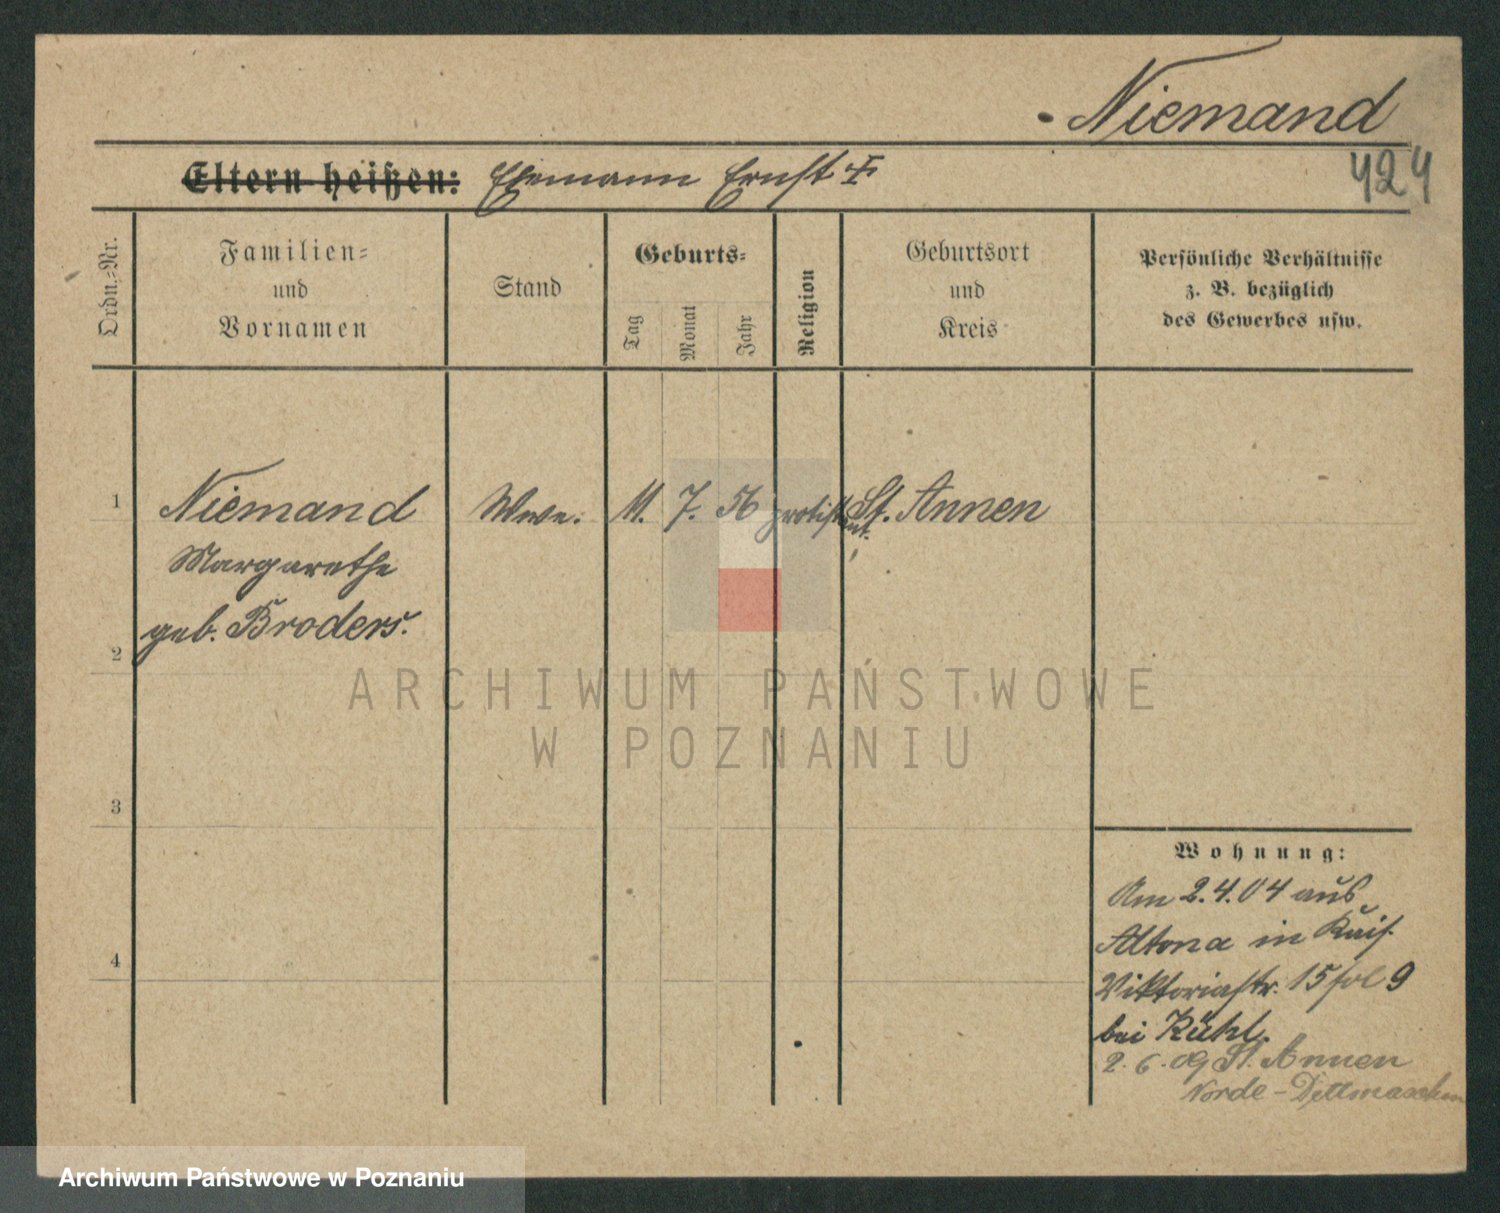 Niemand
424
Eltern heißen: Ehemann Ernst ☨
Ordn.=Nr.
Familien=
und
Vornamen
Stand
Geburts=
Tag
Monat
Jahr
Religion
Geburtsort
und
Kreis
Persönliche Verhältnisse
z. B. bezüglich
des Gewerbes usw.
1 Niemand Wwe. 11. 7. 56 protestant. St. Annen
Margarethe
geb. Broders.
2
3
4
Wohnung:
Am 2.4.04 aus
Altona in Kais.
Viktoriastr. 15 fol 9
bei Kühl.
2. 6. 09 St. Annen
Norde-
ARCHIWUM PAŃSTWOWE
W POZNANIU
Archiwum Państwowe w Poznaniu